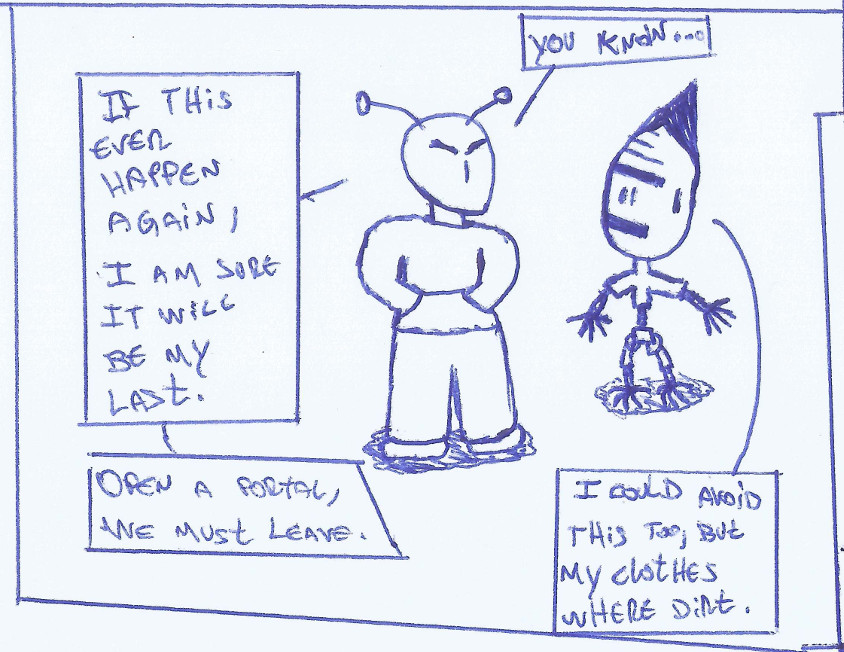 YOU KNOW...
IF THIS
EVER
HAPPEN
AGAIN,
I AM SURE
IT WILL
BE MY
LAST.
OPEN A PORTAL,
WE MUST LEAVE.
I COULD AVOID
THIS TOO, BUT
MY CLOTHES
WHERE DIRT.